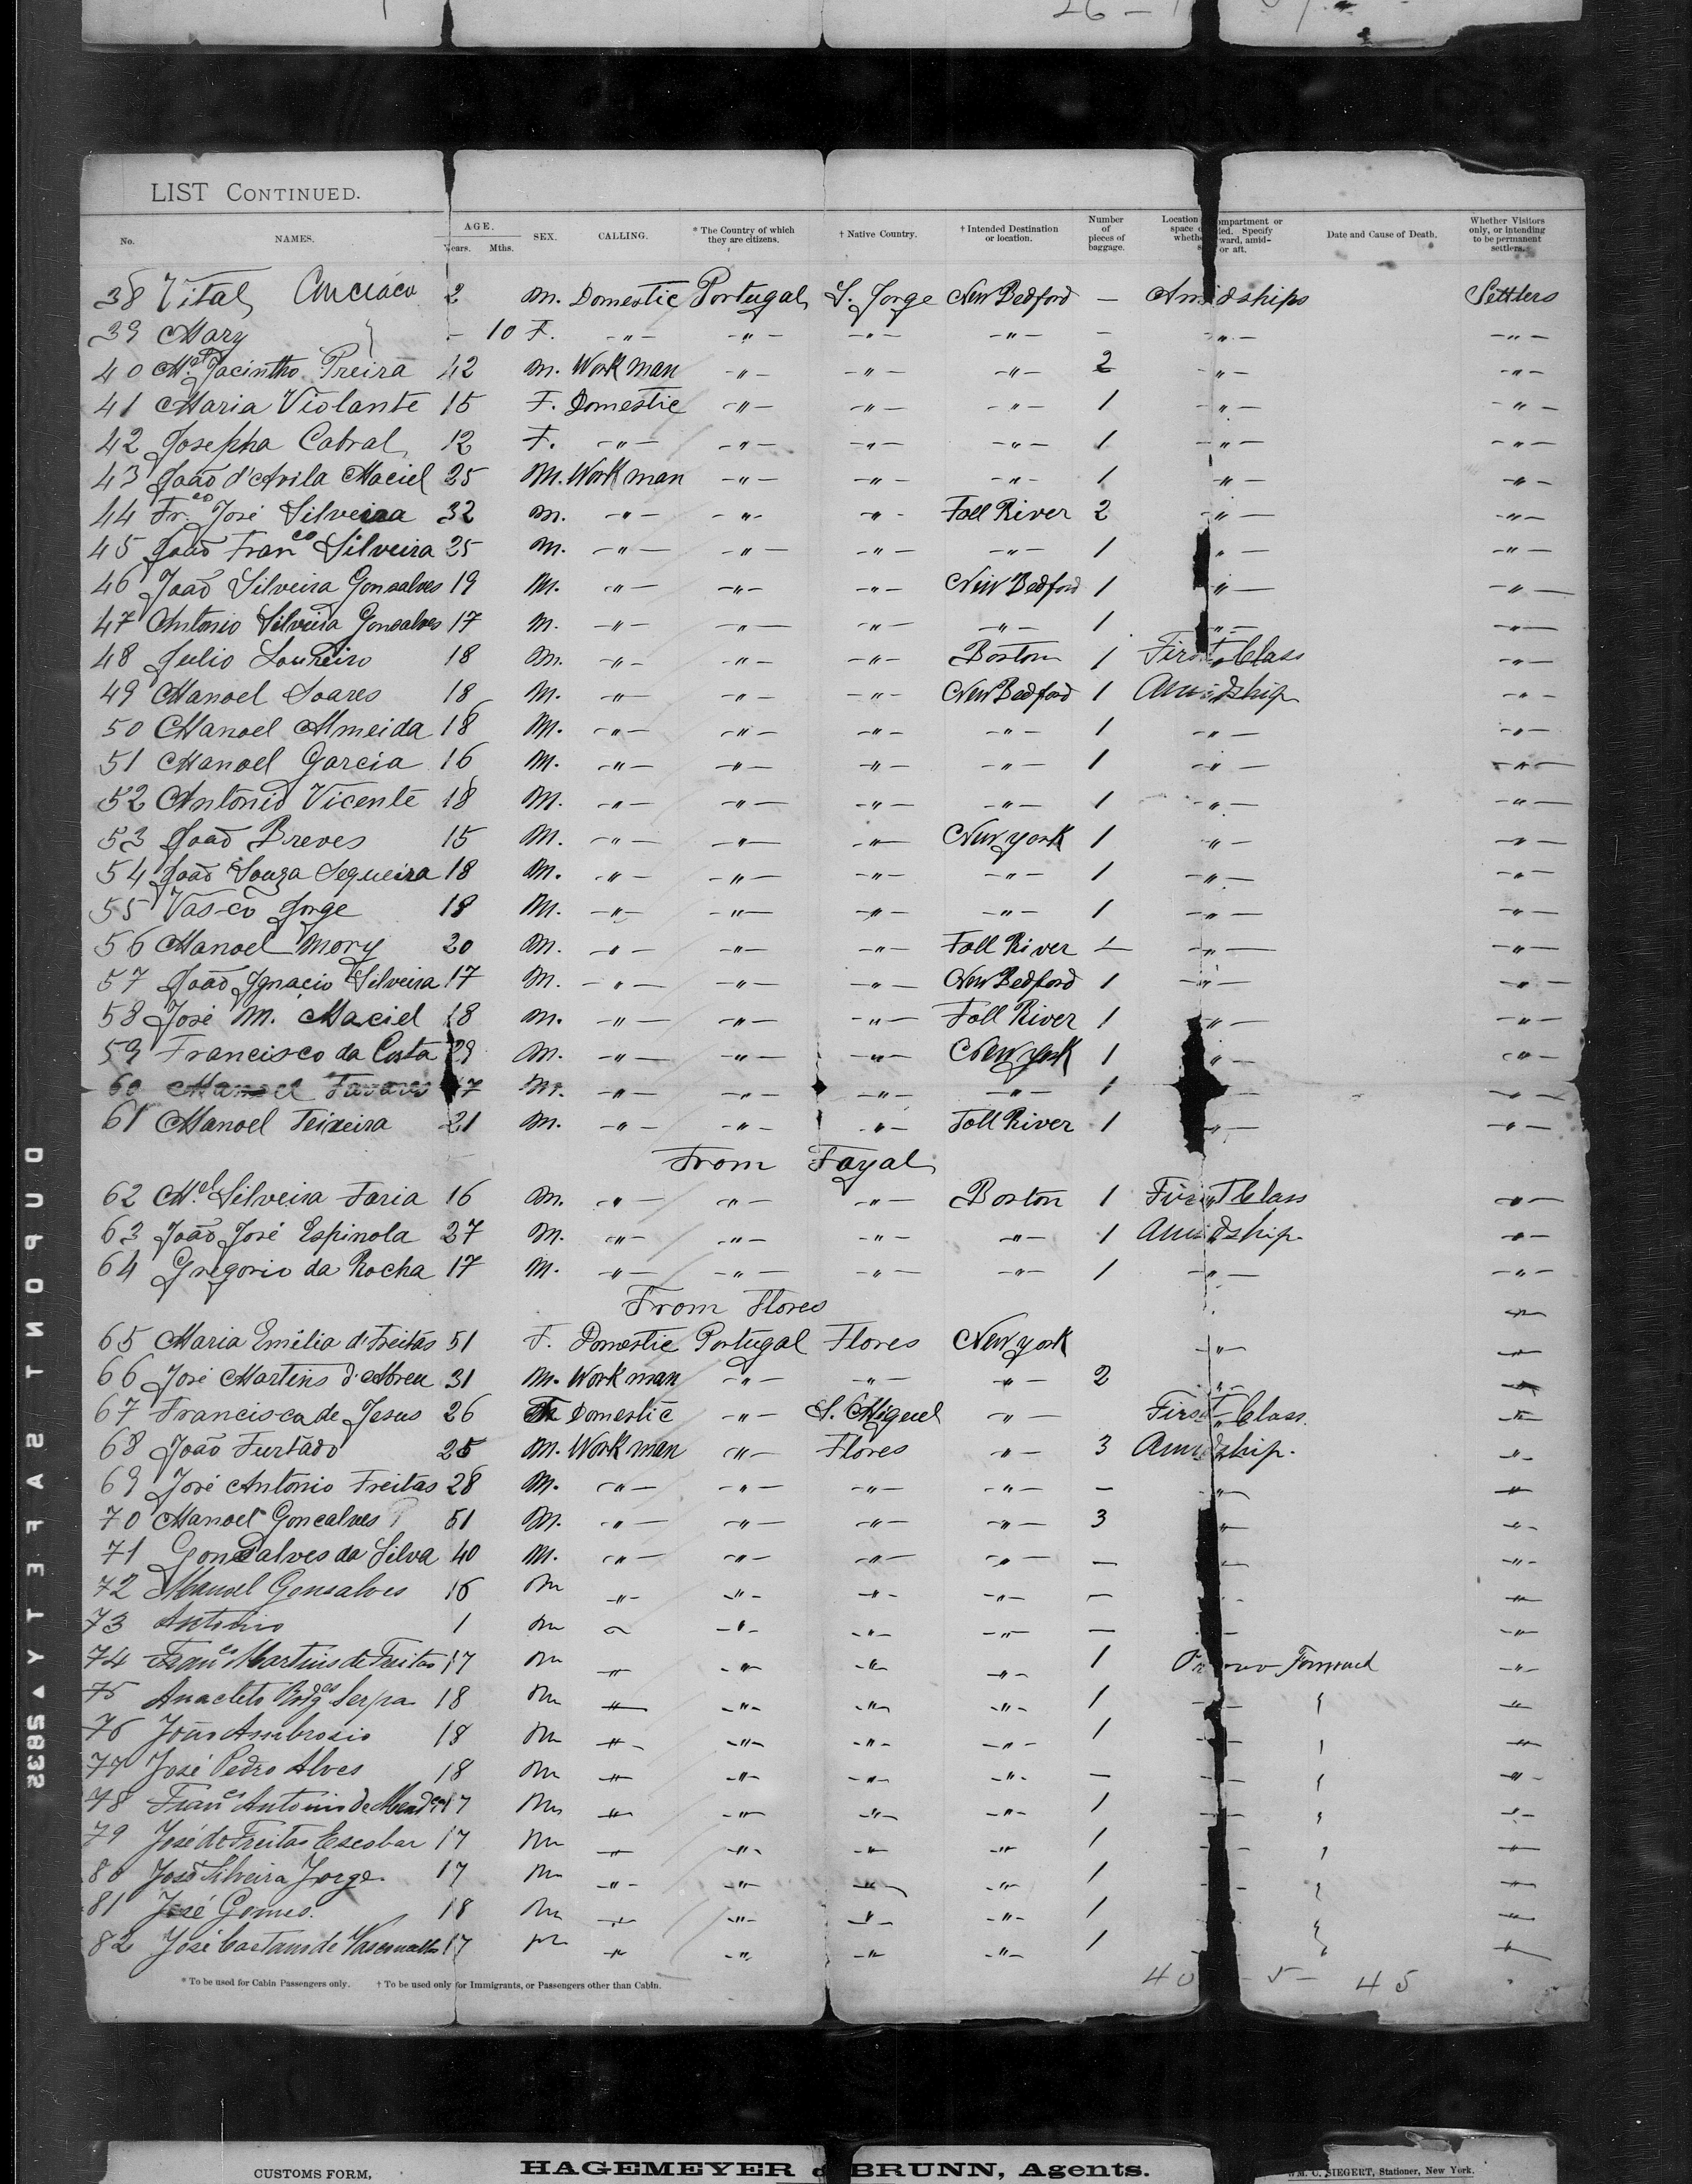 26 –
LIST CONTINUED.
No. NAMES. AGE. Years. Mths. SEX. CALLING. * The Country of which they are citizens. † Native Country. † Intended Destination or location. Number of pieces of baggage. Location compartment or space Specify whether ward, amid- or aft. Date and Cause of Death. Whether Visitors only, or intending to be permanent settlers.
38 Vital 2 m. Domestic Portugal S. Jorge New Bedford — Amidships Settlers
39 Mary } – 10 F. –"– –"– –"– –"– – –"– –"–
40 Mel Jacintho Preira 42 m. Work man –"– –"– –"– 2 –"– –"–
41 Maria Violante 15 F. Domestic –"– –"– –"– 1 –"– –"–
42 Josepha Cabral 12 F. –"– –"– –"– –"– 1 –"– –"–
43 João d'Avila Maciel 25 M. Work man –"– –"– –"– 1 –"– –"–
44 Fr.co José Silveira 32 m. –"– –"– –"– Fall River 2 –"– –"–
45 João Franco Silveira 25 M. –"– –"– –"– –"– 1 –"– –"–
46 João Silveira Gonsalves 19 M. –"– –"– –"– New Bedford 1 –"– –"–
47 Antonio Silveira Gonsalves 17 M. –"– –"– –"– –"– 1 –"– –"–
48 Julio Loureiro 18 M. –"– –"– –"– Boston 1 First Class –"–
49 Manoel Soares 18 M. –"– –"– –"– New Bedford 1 Amidship –"–
50 Manoel Almeida 18 M. –"– –"– –"– –"– 1 –"– –"–
51 Manoel Garcia 16 M. –"– –"– –"– –"– 1 –"– –"–
52 Antonio Vicente 18 M. –"– –"– –"– –"– 1 –"– –"–
53 João Breves 15 M. –"– –"– –"– New york 1 –"– –"–
54 João Souza Sequeira 18 M. –"– –"– –"– –"– 1 –"– –"–
55 Vasco Jorge 18 M. –"– –"– –"– –"– 1 –"– –"–
56 Manoel Mory 20 M. –"– –"– –"– Fall River – –"– –"–
57 João Ignacio Silveira 17 M. –"– –"– –"– New Bedford 1 –"– –"–
58 José M. Maciel 18 m. –"– –"– –"– Fall River 1 –"– –"–
59 Francisco da Costa 29 M. –"– –"– –"– New york 1 –"– –"–
60 Manoel Tavares 17 M. –"– –"– –"– –"– 1 – –"–
61 Manoel Teixeira 21 M. –"– –"– –"– Fall River 1 –"– –"–
From Fayal
62 Mel Silveira Faria 16 M. –"– –"– –"– Boston 1 First Class –"–
63 João José Espinola 27 M. –"– –"– –"– –"– 1 Amidship. –"–
64 Gregorio da Rocha 17 M. –"– –"– –"– –"– 1 –"– –"–
From Flores –"–
65 Maria Emilia de Freitas 51 F. Domestic Portugal Flores New york –"– –"–
66 José Martins d'Abreu 31 M. Work man –"– –"– –"– 2 –"– –"–
67 Francisca de Jesus 26 F. Domestic –"– S. Miguel –"– First Class. –"–
68 João Furtado 25 M. Work man –"– Flores –"– 3 Amidship. –"–
69 José Antonio Freitas 28 M. –"– –"– –"– –"– – –"– –"–
70 Manoel Goncalves 51 M. –"– –"– –"– –"– 3 –"– –"–
71 Gonsalves da Silva 40 M. –"– –"– –"– –"– – – –"–
72 Manoel Gonsalves 16 M –"– –"– –"– –"– – –"–
73 Antonio 1 m – –"– –"– –"– – – –"–
74 Franco Martins de Freitas 17 m –"– –"– –"– –"– 1 Forward –"–
75 Anacleto Rodges Serpa 18 m –"– –"– –"– –"– 1 – " –"–
76 João Ambrosio 18 m –"– –"– –"– –"– 1 – " –"–
77 José Pedro Alves 18 m –"– –"– –"– –"– – – " –"–
78 Franco Antonio de 17 m –"– –"– –"– –"– 1 – " –"–
79 José de Freitas Escobar 17 m –"– –"– –"– –"– 1 – " –"–
80 João Silveira Jorge 17 m –"– –"– –"– –"– 1 – " –"–
81 José Gomes. 18 m –"– –"– –"– –"– 1 –"–
82 José Caetano de Vasconcellos 17 m –"– –"– –"– –"– 1 –"–
* To be used for Cabin Passengers only. † To be used only for Immigrants, or Passengers other than Cabin.
40 – 5 – 45
DUPONT SAFETY ▲ 5832
CUSTOMS FORM,
HAGEMEYER & BRUNN, Agents.
WM. C. SIEGERT, Stationer, New York.